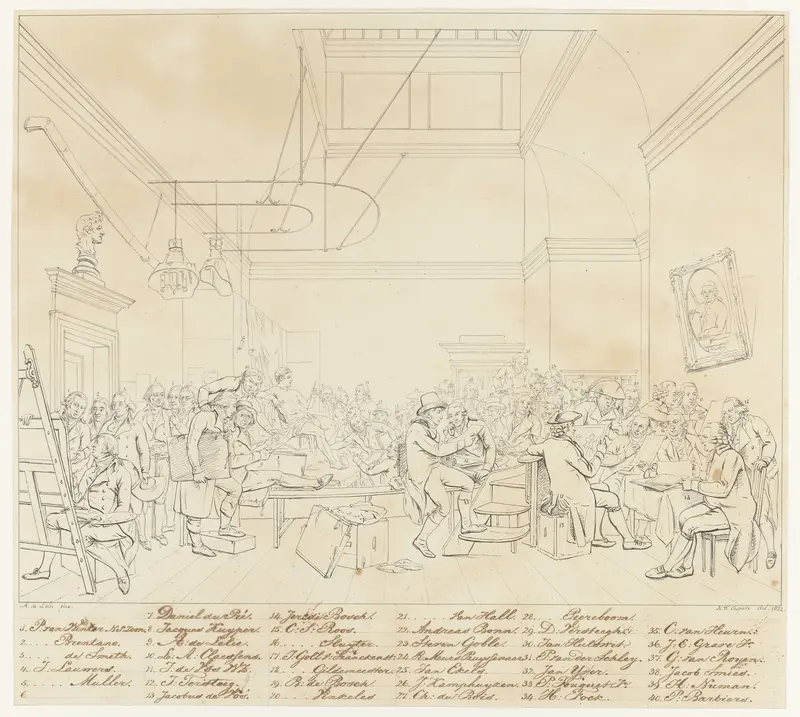 A. de Lelie pinx.
1. P. van Winter Ns. Zoon
2. .... Brentano.
3. .... de Smeth.
4. J. Lauwers.
5. .... Muller.
6.
7. Daniel du Pré.
8. Jacques Kuyper.
9. A. de Lelie
10. L. M.
11. J. de Vos Wz.
12. J. Tersteeg.
13. Jacobus de Vos.
14. Jer. de Bosch.
15. C. S. Roos.
16. .... Kuyter.
17. J. Goll v. Franckenst.
18. .... Eilemeester
19. B. de Bosch.
20. .... Vinkeles
21. .... Van Hall.
22. Andreas Bonn.
23. Steven Goble.
24. R. Muus Pruyssenaer
25. Van Ekels
26. J. Kamphuyzen
27. Ch: de Vries.
28. .... Peereboom.
29. D. Versteegh.
30. Van Hulswit
31. P. van der Schley.
32. Jan Yver.
33. P. Fouquet Jr.
34. H. Fock.
35. C. van Heurn.
36. J. E. Grave Jr.
37. G. van Rooyen.
38. Jacob Smies.
39. H. Numan.
40. P. Barbiers.